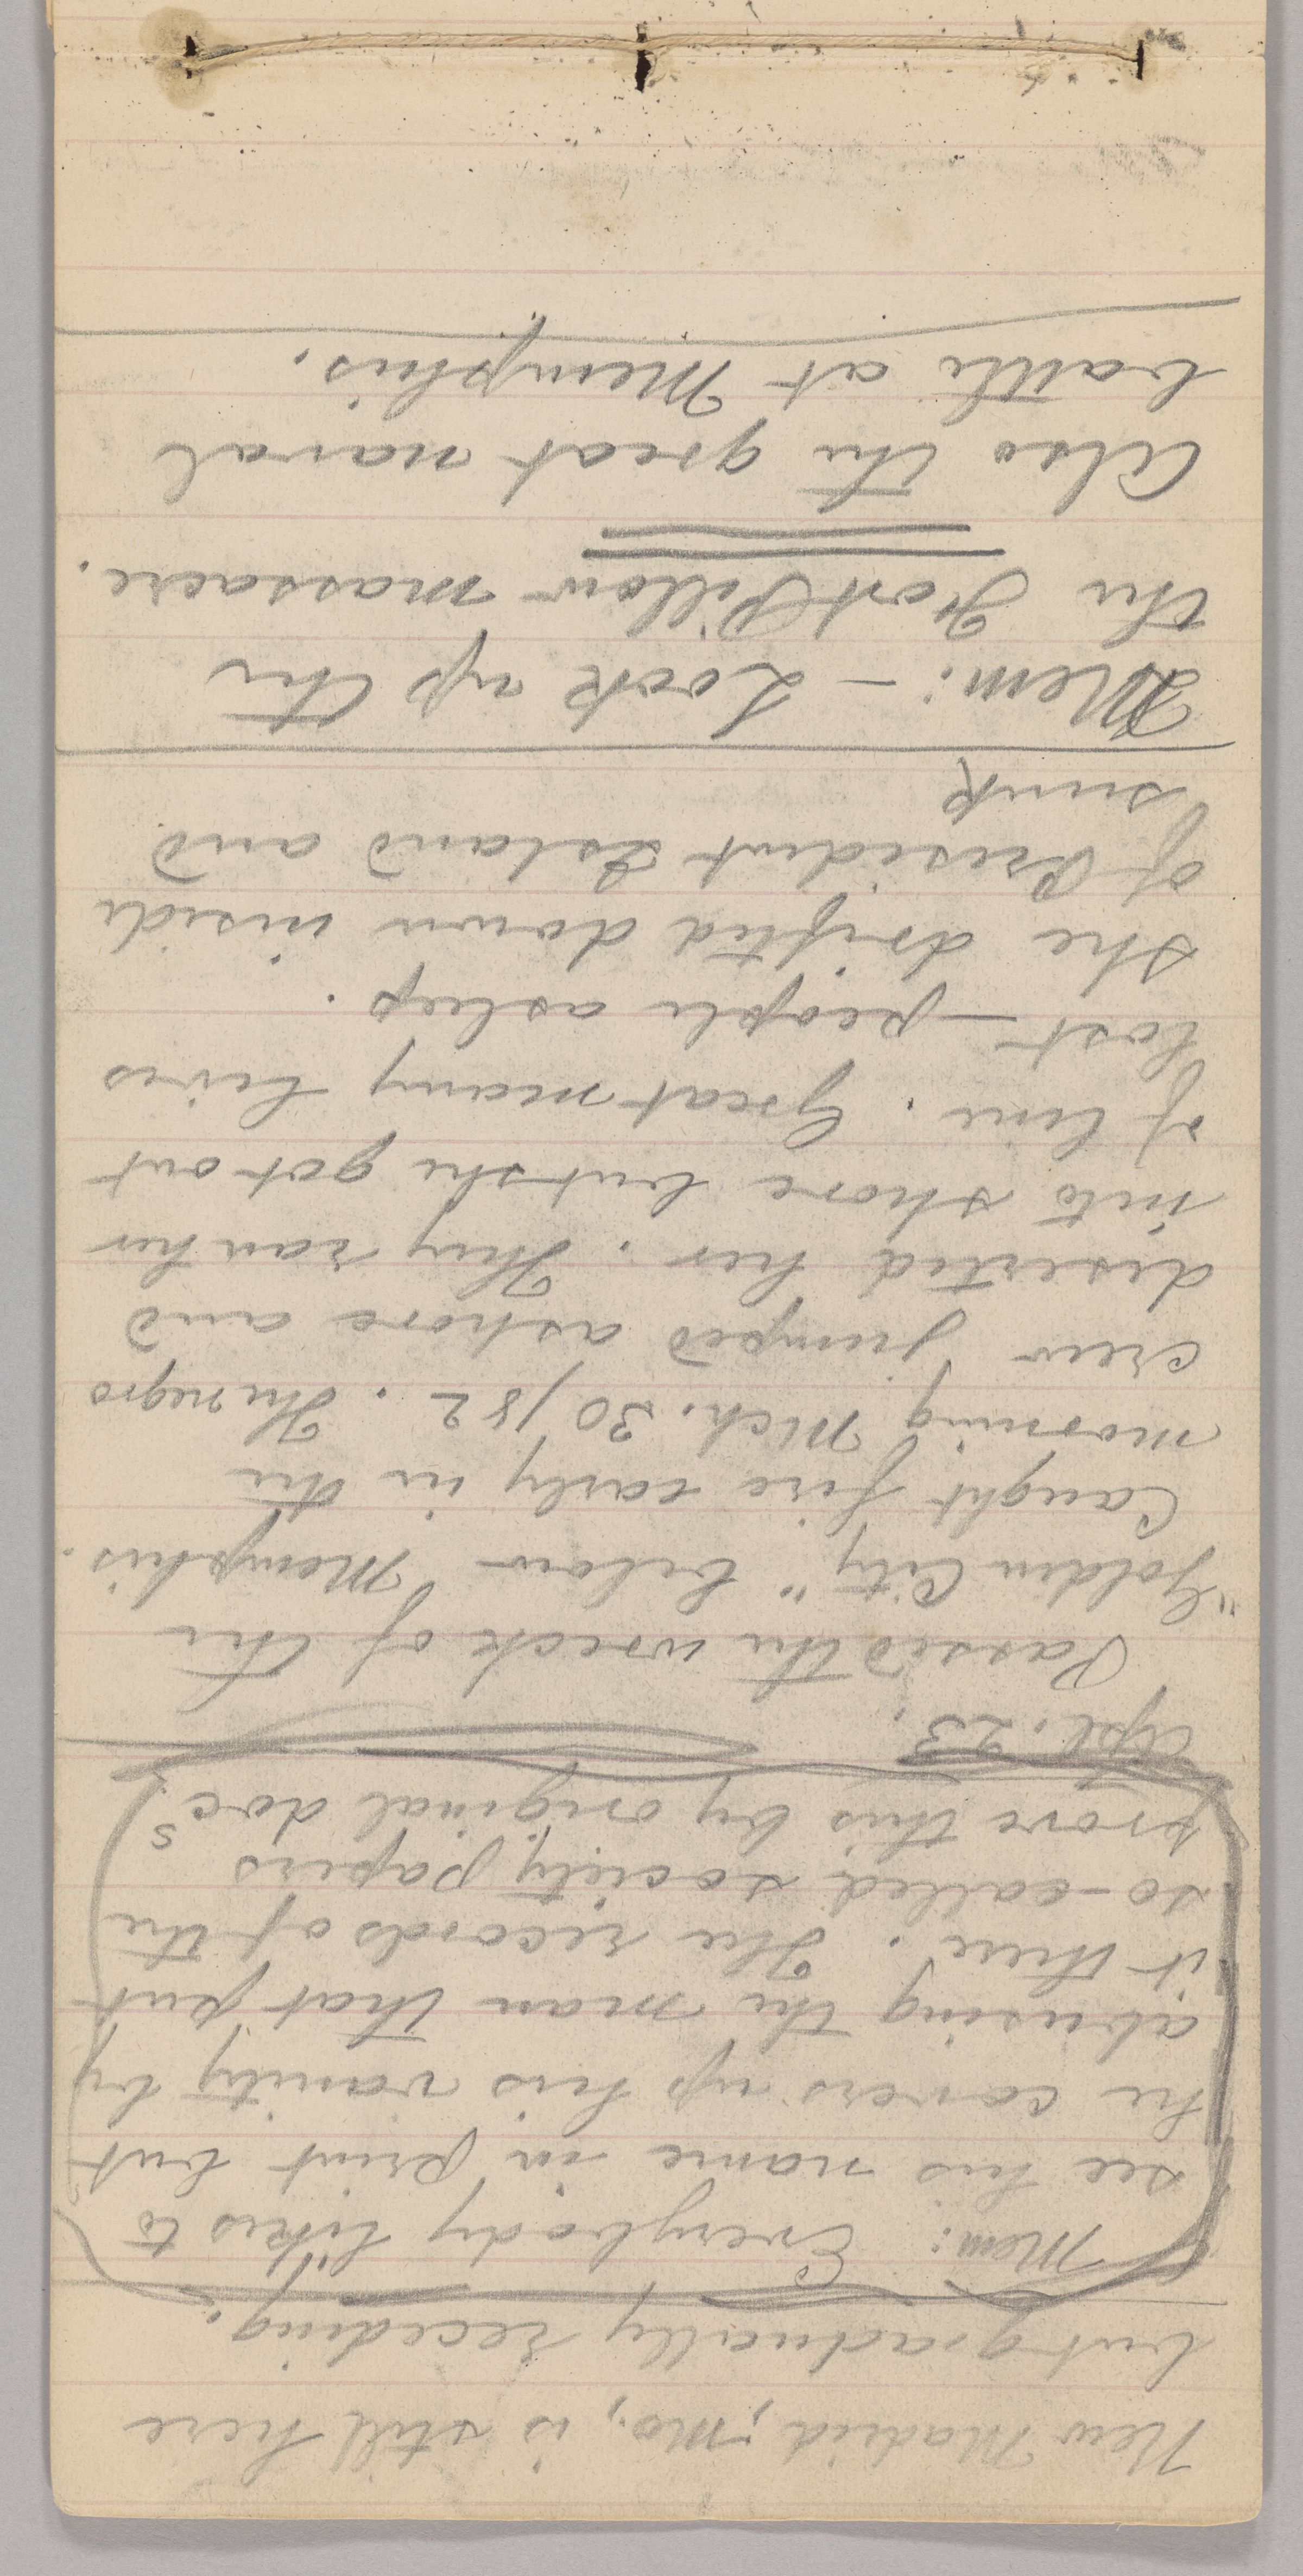 New Madrid, Mo, is still here
but gradually receding.
Mem: Everybody likes to
see his name in print but
he covers up his vanity by
abusing the man that put
it there. The records of the
so-called society papers
prove this by original docs
Apl. 23.
Passed the wreck of the
"Golden City" below Memphis.
Caught fire early in the
morning Mch. 30/82. The negro
crew jumped ashore and
deserted her. They ran her
into shore but she got out
of line. Great many lives
lost — people asleep.
She drifted down inside
of President Island and
sunk
Mem: — Look up the
the Fort Pillow massacre.
Also the great naval
battle at Memphis.